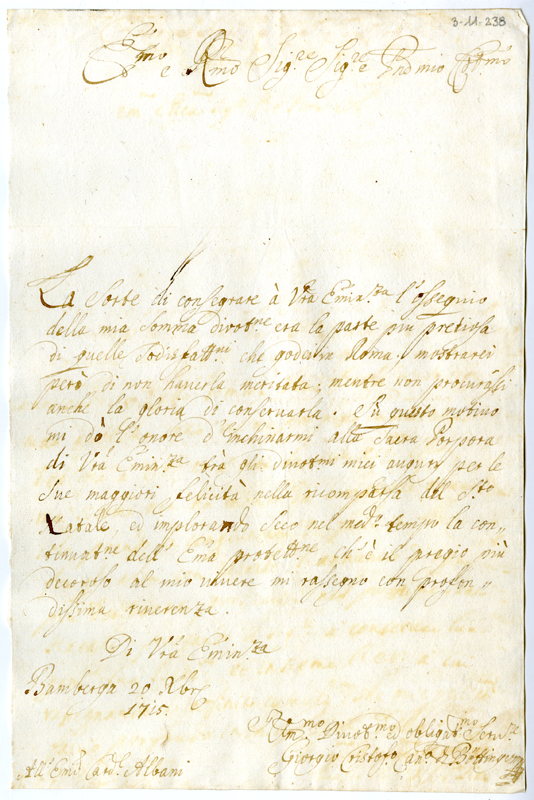 3-11-238
E.mo e R.mo Sig.re Sig.re Pnd mio Col.mo
La sorte di consegrare à Vrã Emin.za l'ossequio
della mia somma divot.ne era la parte più pretiosa
di quelle sodisfatt.ni che godei in Roma; mostrarei
però di non haverla meritata, mentre non procurassi
anche la gloria di conservarla. Sù questo motivo
mi dò l'onore d'inchinarmi alla Sacra Porpora
di Vrã Emin.za frà gli divot.mi miei augurÿ per le
sue maggiori felicità nella ricomparsa del S.to
Natale, ed implorando seco nel med.o tempo la con„
tinuat.ne dell' Emã protett.ne ch'è il pregio più
decoroso al mio vivere mi rassegno con profon„
dissima riverenza.
Di Vrã Emin.za
Bamberga 20 Xbre
1715.
Um.mo Divot.mo ed obligat.mo Serv.re
Giorgio Cristof.o Can.o di
All' Emo Card.l Albani